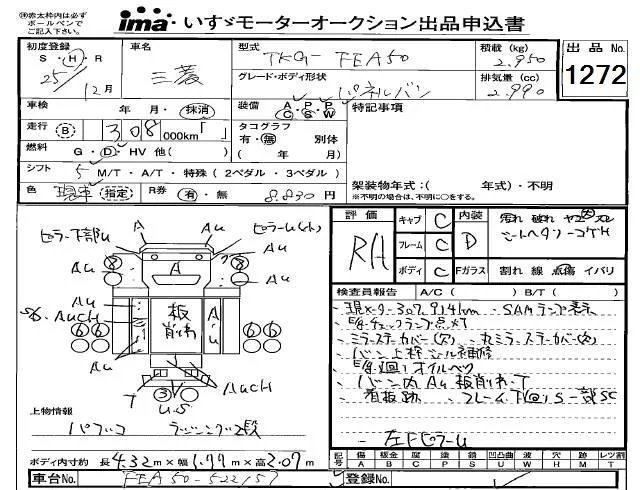 ㊟赤太枠内は必ず
ボールペンで
ご記入下さい。
ima・いすゞモーターオークション出品申込書
初度登録 車名 型式 積載 (kg) 出品 No.
S・H・R 三菱 TKG- FEA50 2.950 1272
25/12月 グレード・ボディ形状 排気量 (cc)
パネルバン 2.990
車検 年 月・抹消 装備 A・P・P C・S・W 特記事項
走行 B 308000km「 」 タコグラフ
有・無 別体
燃料 G・D・HV 他( ) ( 年 月)
シフト 5 M/T・A/T・特殊 (2ペダル・3ペダル) 架装物年式:( 年式)・不明
※不明の場合は、不明に〇をする。
色 現車 指定 R券 有・無 8.830円
評価 キャブ C 内装
RA フレーム C D
ボディ C Fガラス 割れ 線 点傷 イバリ
ピラー下部U A AU ピラーU
検査員報告 A/C ( ) B/T ( )
現メーター307,914km SAMランプ表示
E/gチェックランプ点灯
ミラーステーカバー(穴)
バン上枠シール補修
E/g(廻)オイルベク
バン内AU 板削れ・T
看板跡 フレーム下(回)S 一部SC
左FピラーU
AU A AU
AU 板削れ AU
S6 AUCH
AU AUCH
T ③ U.S
上物情報
パブコ ラッシング2段
ボディ内寸約 長4.32m×幅1.77m×高2.07m
記号 傷 板金 腐 塗 錆 凹凸曲 波 穴 時計 レツ割
A B C P S U W H M T
車台No. FEA50-522157 登録No.